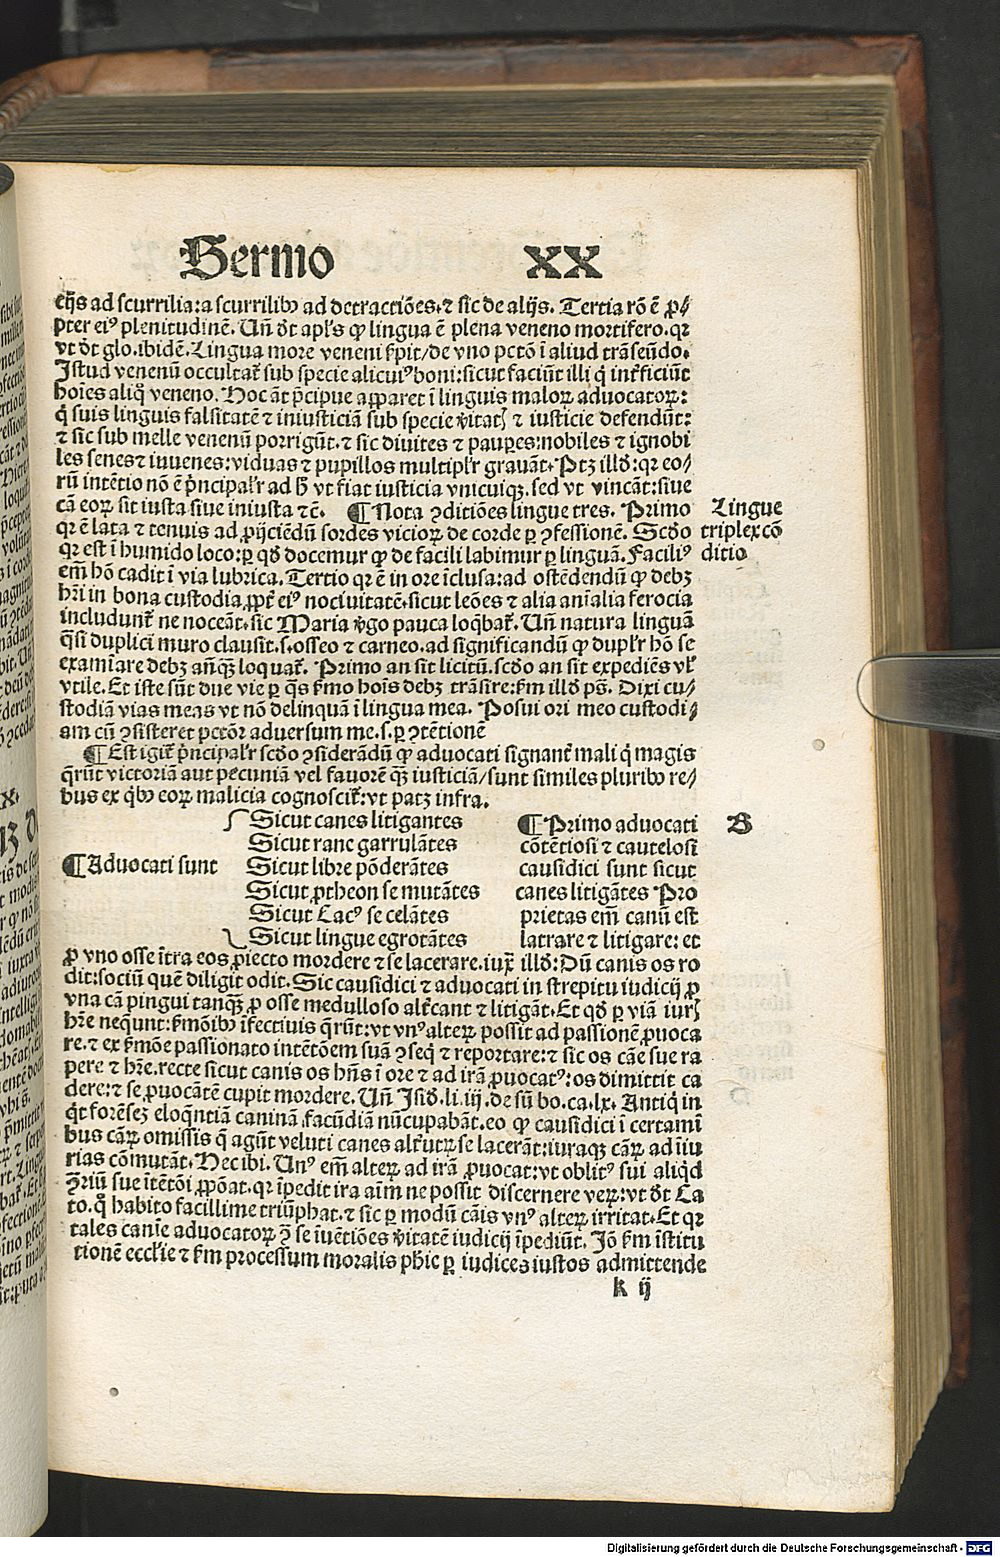 Sermo XX
cijs ad scurrilia: a scurrilibꝰ ad detractiões. ⁊ sic de alijs. Tertia rõ ē ꝓ⸗
pter eiꝰ plenitudinē. Uñ dt̄ apl's ꝙ lingua ē plena veneno mortifero. qꝛ
vt dt̄ glo. ibidē. Lingua more veneni ẜpit/ de vno pctō ī aliud trāseūdo.
Istud venenū occultat̄ sub specie alicuiꝰ boni: sicut faciūt illi q̇ int̄ficiūt
hoīes aliq̇ veneno. Hoc āt p̄cipue apparet ī linguis maloꝝ aduocatoꝝ:
q̇ suis linguis falsitatē ⁊ iniusticiā sub specie v̄itatꝭ ⁊ iusticie defendūt:
⁊ sic sub melle venenū porrigūt. ⁊ sic diuites ⁊ paupes: nobiles ⁊ ignobi
les senes ⁊ iuuenes: viduas ⁊ pupillos multipl'r grauāt. Ptꝫ illđ: qꝛ eo⸗
rū intētio nō ē p̄ncipal'r ad h̄ vt fiat iusticia vnicuiqꝫ. sed vt vincāt: siue
cā eoꝝ sit iusta siue iniusta ⁊c̄. ¶ Nota ꝯditiões lingue tres. Primo
qꝛ ē lata ⁊ tenuis ad ꝓijciēdū sordes vicioꝝ de corde ꝑ ꝯfessionē. Scđo
qꝛ est ī humido loco: ꝑ qđ docemur ꝙ de facili labimur ꝑ linguā. Faciliꝰ
em̄ hō cadit ī via lubrica. Tertio qꝛ ē in ore īclusa: ad ostēdendū ꝙ debꝫ
hr̄i in bona custodia, ꝓpt̄ eiꝰ nociuitatē. sicut leões ⁊ alia aīalia ferocia
includunt̄ ne noceāt. sic Maria v̄go pauca loq̄bat̄. Uñ natura linguā
q̄si duplici muro clausit. s. osseo ⁊ carneo. ad significandū ꝙ dupl'r hō se
examīare debꝫ añq̄ꝫ loquat̄. Primo an sit licitū. scđo an sit expediēs vl'
vtile. Et iste sūt due vie ꝑ q̄s ẜmo hoīs debꝫ trāsire: ẜm illđ pš. Dixi cu⸗
stodiā vias meas vt nō delinquā ī lingua mea. Posui ori meo custodi⸗
am cū ꝯsisteret pctōr aduersum me. s. ꝑ ꝯtētionē
¶ Est igit̄ p̄ncipal'r scđo ꝯsiderādū ꝙ aduocati signant̄ mali q̇ magis
q̄rūt victoriā aut pecuniā vel fauorē q̄ꝫ iusticiā/ sunt similes pluribꝰ re⸗
bus ex q̇bꝰ eoꝝ malicia cognoscit̄: vt patꝫ infra.
Lingue
triplex cō
ditio
¶ Aduocati sunt
Sicut canes litigantes
Sicut rane garrulātes
Sicut libre pōderātes
Sicut ꝓtheon se mutātes
Sicut Cacꝰ se celātes
Sicut lingue egrotātes
¶ Primo aduocati
cōtētiosi ⁊ cautelosi
causidici sunt sicut
canes litigātes Pro
prietas em̄ canū est
latrare ⁊ litigare: et
B
ꝓ vno osse ītra eos ꝓiecto mordere ⁊ se lacerare. iux̄ illđ: Dū canis os ro
dit: sociū quē diligit odit. Sic causidici ⁊ aduocati in strepitu iudicij ꝓ
vna cā pingui tanq̄ꝫ ꝓ osse medulloso alt̄cant ⁊ litigāt. Et qđ ꝑ viā iurꝭ
hr̄e nequnt: ẜmōibꝰ īfectiuis q̄rūt: vt vnꝰ alteꝝ possit ad passionē ꝓuoca
re. ⁊ ex ẜmōe passionato intētōem suā ꝯseq̄ ⁊ reportare: ⁊ sic os cāe sue ra
pere ⁊ hr̄e. recte sicut canis os hn̄s ī ore ⁊ ad irā ꝓuocatꝰ: os dimittit ca
dere: ⁊ se ꝓuocātē cupit mordere. Uñ Isiđ. li. iij. de sū bo. ca. lx. Antiq̇ in
q̇t forēseꝫ eloq̄ntiā caninā facūdiā nūcupabāt. eo ꝙ causidici ī certami
bus cāꝝ omissis q̄ agūt veluti canes alt̄utꝝ se lacerāt: iuraqꝫ cāꝝ ad īiu
rias cōmutāt. Hec ibi. Unꝰ em̄ alteꝝ ad irā ꝓuocat: vt oblitꝰ sui aliq̇d
ꝯ̄riū sue itētōi ꝓpōat. qꝛ īpedit ira aīm ne possit discernere veꝝ: vt dt̄ Ca
to. q̊ habito facillime triūphat. ⁊ sic ꝑ modū cāis vnꝰ alteꝝ irritat. Et qꝛ
tales canīe aduocatoꝝ ꝯ̄ se īuētiões v̄itatē iudicij īpediūt. Iō ẜm īstitu
tionē eccl'ie ⁊ ẜm processum moralis phīe ꝑ iudices iustos admittende
k ij
Digitalisierung gefördert durch die Deutsche Forschungsgemeinschaft - DFG